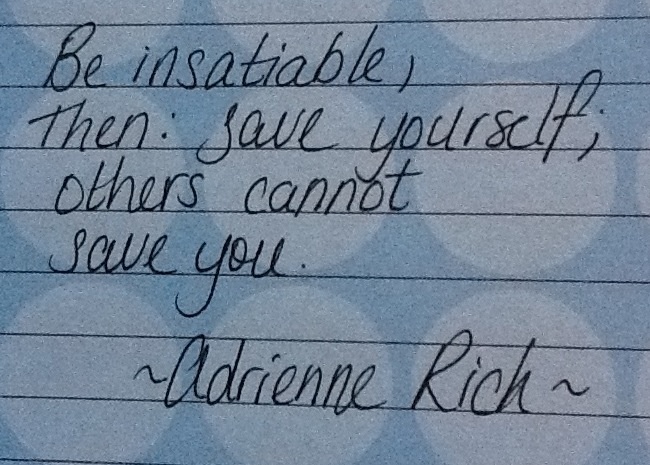 Be insatiable,
Then: save yourself;
others cannot
save you.
~Adrienne Rich~